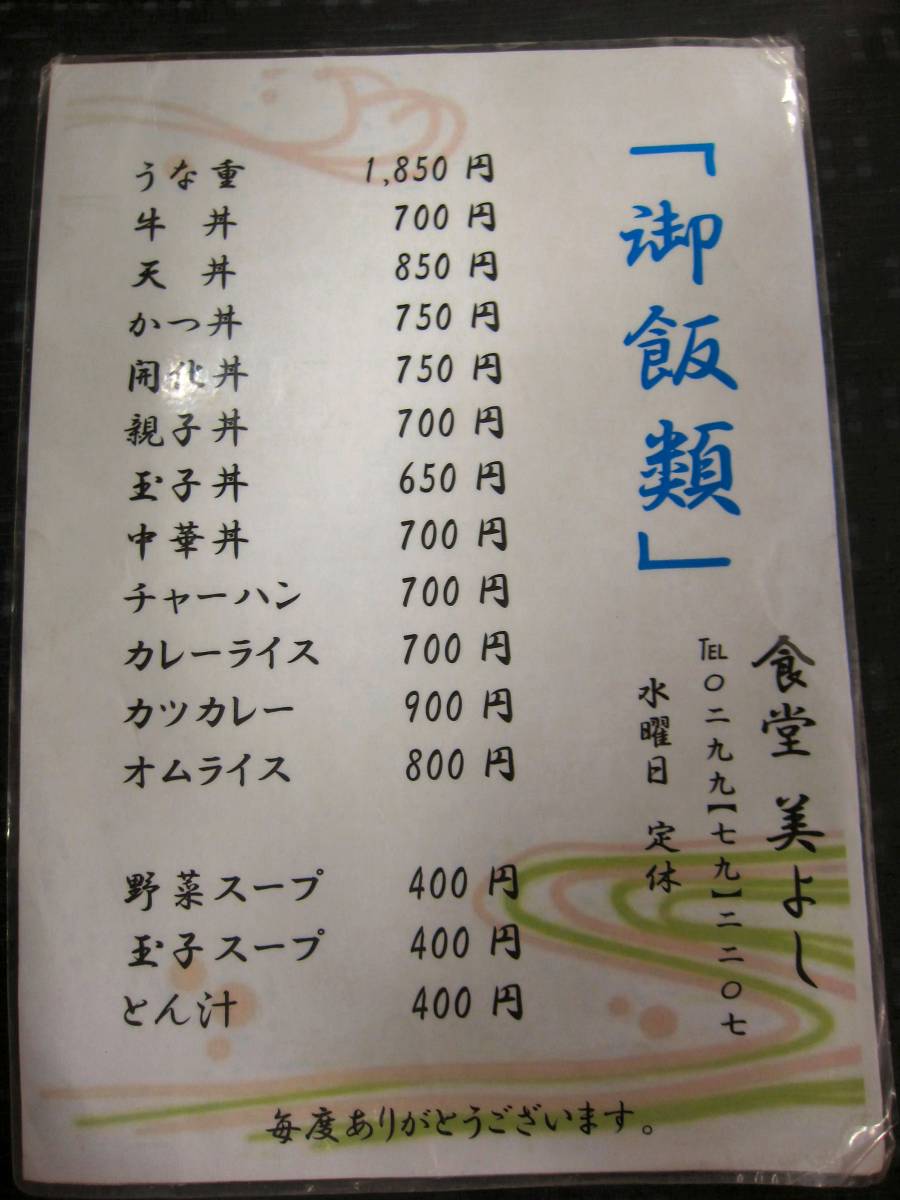 「御飯類」
食堂 美よし
TEL〇二九九【七九】二二〇七
水曜日 定休
うな重 1,850 円
牛 丼 700 円
天 丼 850 円
かつ丼 750 円
開化丼 750 円
親子丼 700 円
玉子丼 650 円
中華丼 700 円
チャーハン 700 円
カレーライス 700 円
カツカレー 900 円
オムライス 800 円
野菜スープ 400 円
玉子スープ 400 円
とん汁 400 円
毎度ありがとうございます。